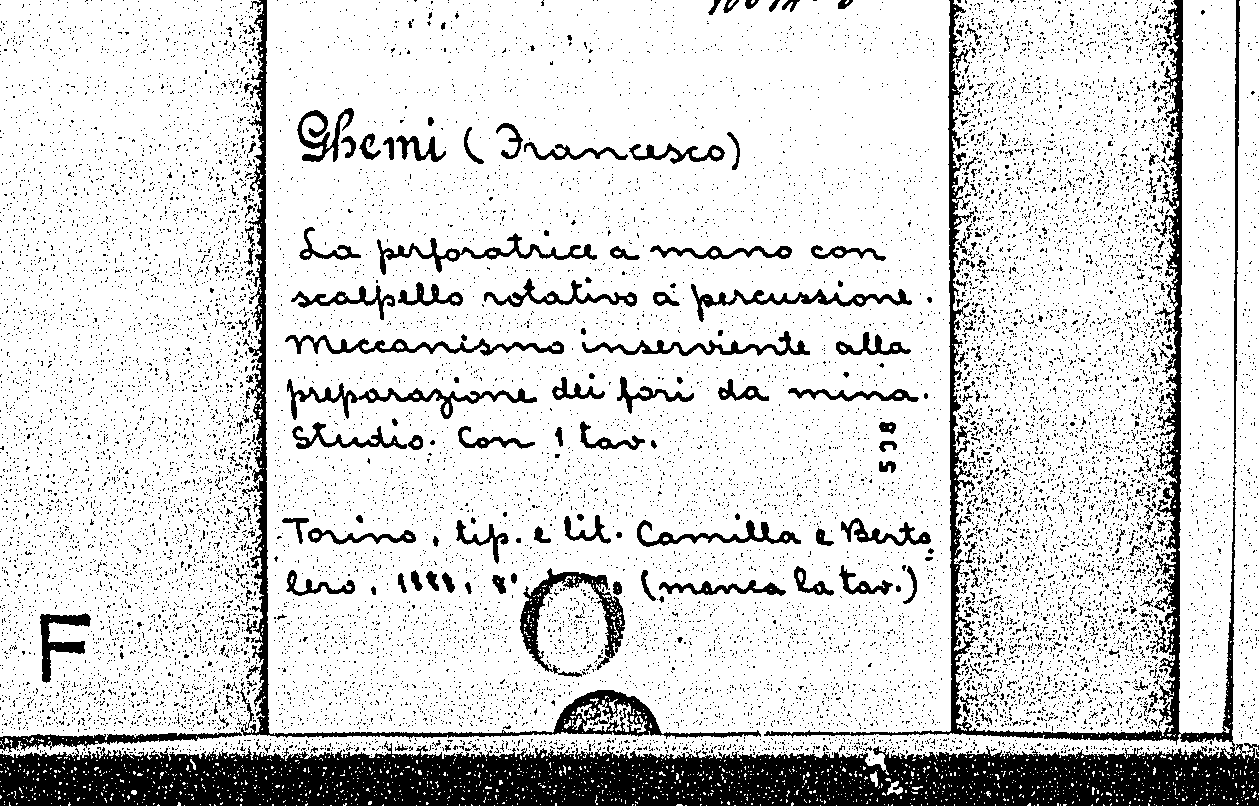 Ghemi (Francesco)
La perforatrice a mano con
scalpello rotativo a percussione.
Meccanismo inserviente alla
preparazione dei fori da mina.
Studio. Con 1 tav.
538
Torino, tip. e lit. Camilla e Berto=
lero, 1888, 8°, (manca la tav.)
F